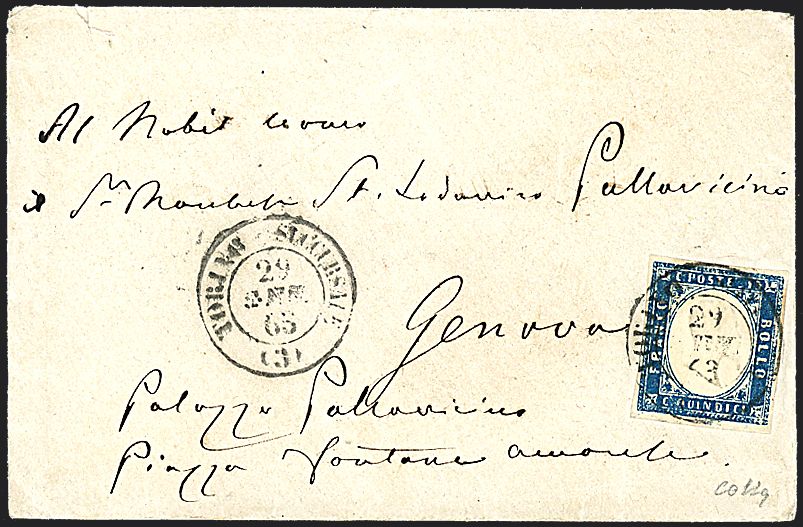 Al Nobil uomo
St. Lodovico Pallavicino
TORINO SUCCURSALE
29
GEN
63
(3)
Genova
C. POSTE
FRANCO
BOLLO
C. QUINDICI
TORINO
29
63
Palazzo Pallavicino
Piazza Fontane amorose.